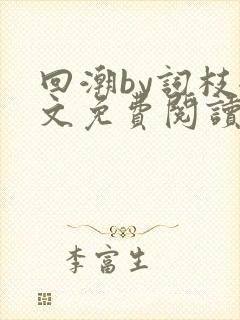 回潮by詞枝
文免費閱讀
李富生